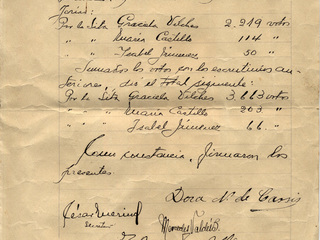 Por la Srta Graciela Vilches 2.919 votos
" " " María Castillo 114 "
" " " Isabel Jimenez 50 "
Sumados los votos con los escrutinios an-
teriores, dió el total siguiente:
Por la Srta Graciela Vilches 3.113 votos
" " " María Castillo 263 "
" " " Isabel Jimenez 66 "
constancia, firmaron los
presentes
Dora N. de
César Merino
Mercedes Valdés